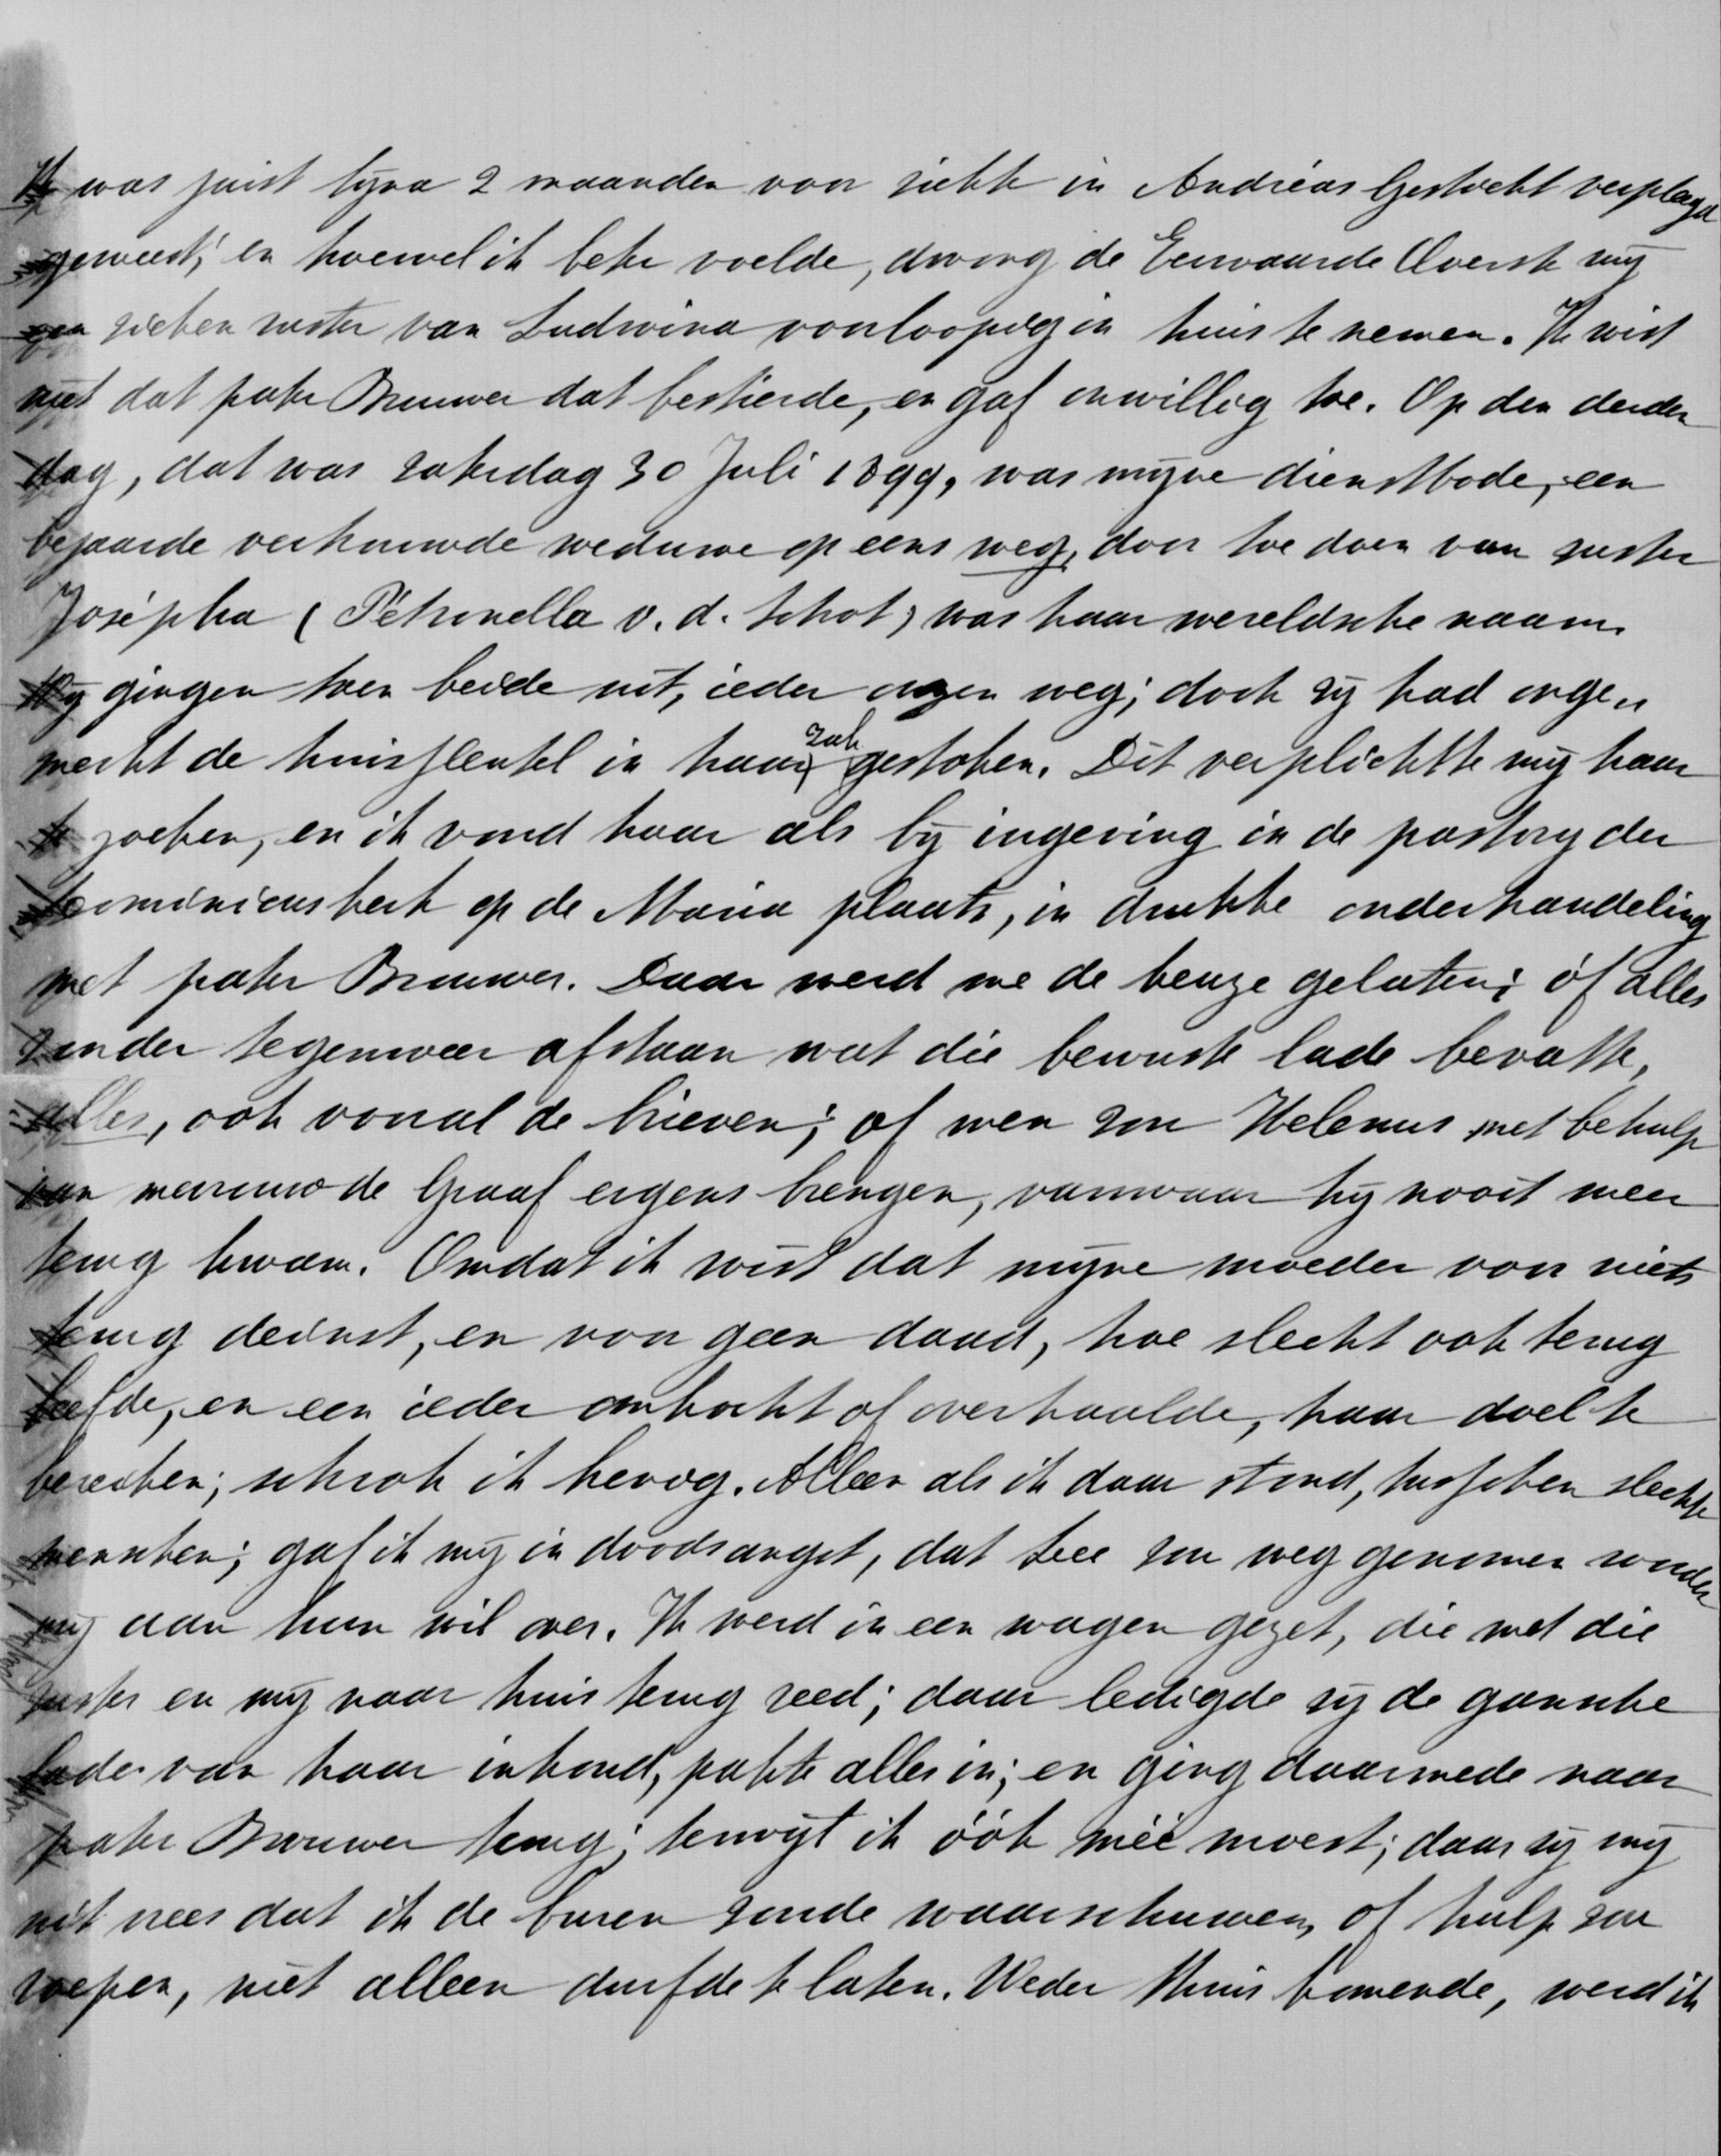 Ik was juist byna 2 maanden voor ziekte in Andréas Gesticht verpleegd
geweest; en hoewel ik beter voelde, dwong de Eerwaarde Overste my
een zieken zuster van Ludwina voorloopig in huis te nemen. Ik wist
niet dat pater Brouwer dat bestierde, en gaf onwillig toe. Op den derden
dag, dat was zaterdag 30 Juli 1899, was myne dienstbode, een
bejaarde vertrouwde weduwe op eens weg, door toe doen van zuster
Josépha (Pétronella v. d. Schot) was haar wereldsche naam.
Wy gingen toen beide uit, ieder eigen weg; doch zy had onge-
merkt de huissleutel in haar zak gestoken. Dit verplichtte my haar
te zoeken, en ik vond haar als by ingeving in de pastory der
Dominicuskerk op de Maria plaats, in drukke onderhandeling
met pater Brouwer. Daar werd me de keuze gelaten; óf alles
zonder tegenweer afstaan wat die bewuste lade bevatte,
alles, ook vooral de brieven; of men zou Helenus met behulp
van mevrouw de Graaf ergens brengen, vanwaar hy nooit meer
terug kwam. Omdat ik wist dat myne moeder voor niets
terug deinst, en voor geen daad, hoe slecht ook terug
beefde, en een ieder omkocht of overhaalde, haar doel te
bereiken; schrok ik hevig. Alleen als ik daar stond, tusschen slechte
menschen; gaf ik my in doodsangst, dat Lee zou weg genomen worden
my aan hun wil over. Ik werd in een wagen gezet, die met die
zuster en my naar huis terug reed; daar ledigde zy de gansche
lade van haar inhoud, pakte alles in; en ging daarmede naar
pater Brouwer terug; terwyl ik óók méé moest; daar zy my
uit vrees dat ik de buren zoude waarschuwen, of hulp zou
roepen, niet alleen durfde te laten. Weder thuis komende, werd ik